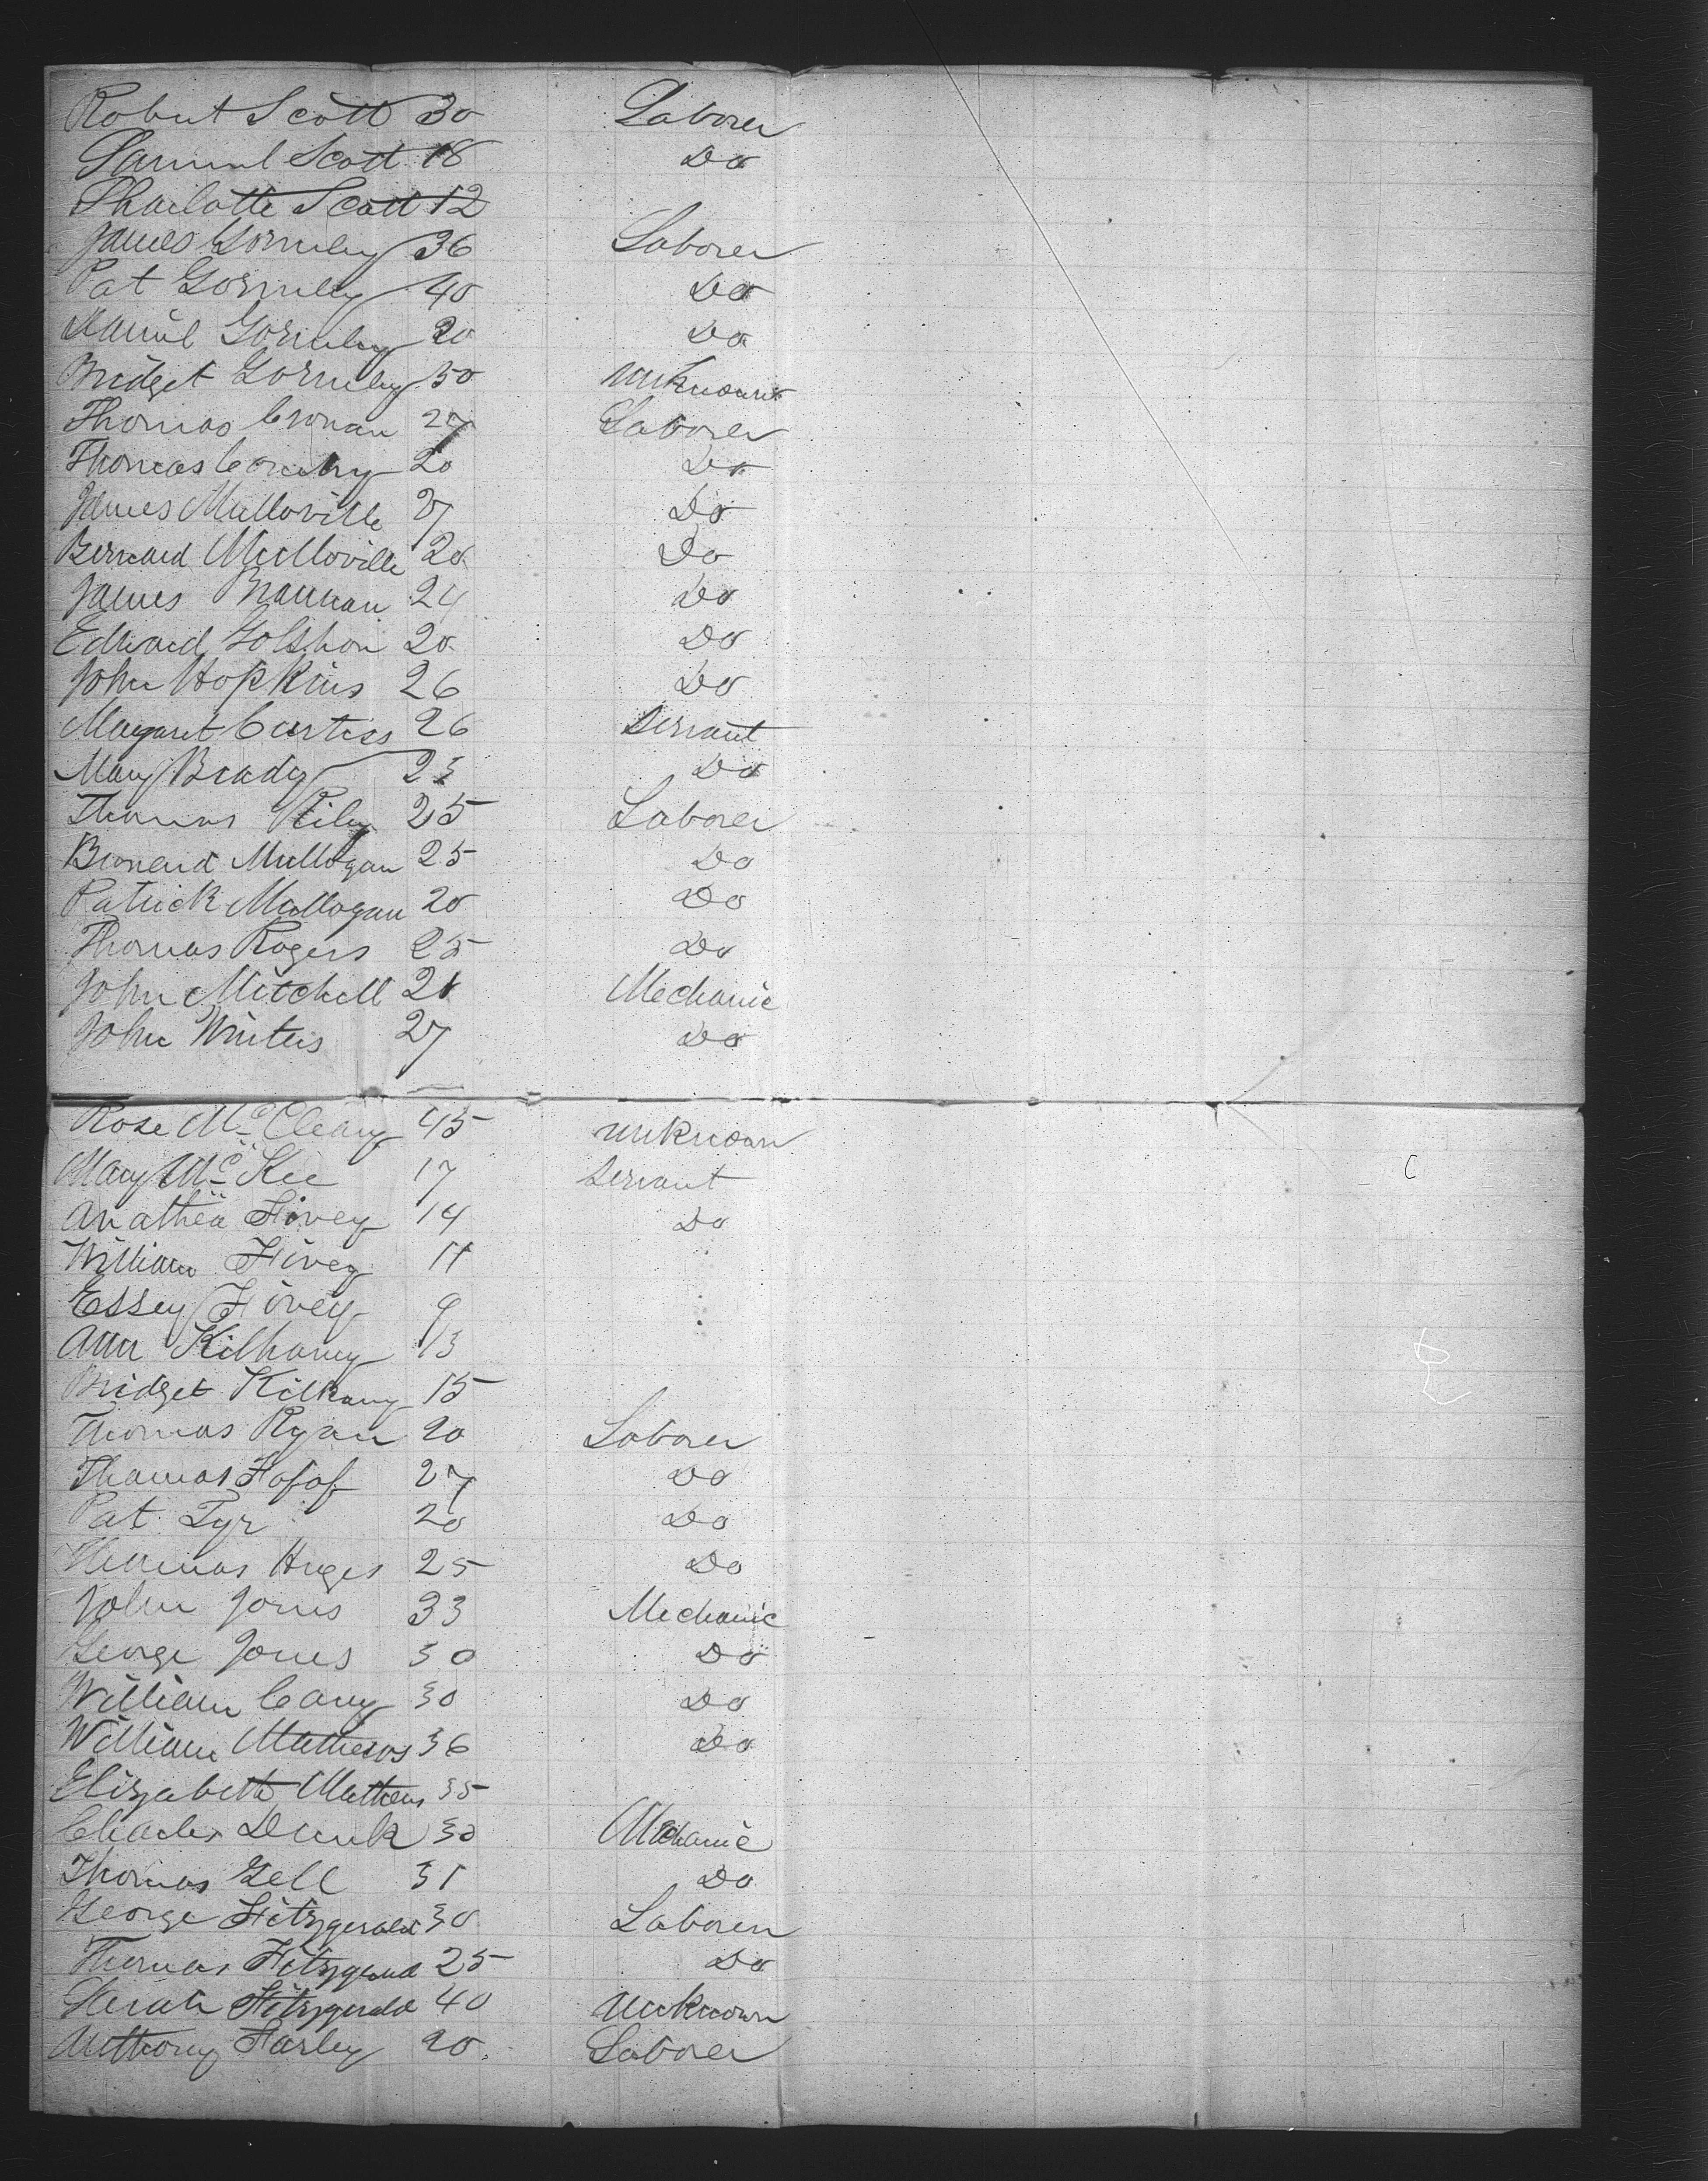 Robert Scott 30 Laborer
Samuel Scott 18 Do
Sharlotte Scott 12
James Gormley 36 Laborer
Pat Gormley 40 Do
Daniel Gormley 20 Do
Bridget Gormley 50 unknown
Thomas Cronan 27 Laborer
Thomas 20 Do
James Mulloville 27 Do
Bernard Mulloville 20 Do
James Brannan 24 Do
Edward Golshon 20 Do
John Hopkins 26 Do
Magaret Curtiss 26 Servant
Mary Brady 23 Do
Thomas Riley 25 Laborer
Bernard Mullogan 25 Do
Patrick Mullogan 20 Do
Thomas Rogers 25 Do
John Mitchell 21 Mechanic
John Winters 27 Do
Rose McCleary 45 unknown
Mary McKee 17 Servant
Anathea Fivey 14 Do
William Fivey 11
Essey Fivey 9
Ann Kilhany 13
Bridget Kilkany 15
Thomas Ryan 20 Laborer
Thomas 27 Do
Pat Tyr 20 Do
Thomas Huges 25 Do
John Jones 33 Mechanic
George Jones 30 Do
William Cany 30 Do
William Mathews 36 Do
Elizabeth Mathews 35
Charles Dunk 30 Mechanic
Thomas Gell 31 Do
George Fitzgerald 30 Laborer
Thomas Fitzgerald 25 Do
Fitzgerald 40 unknown
Anthony Farley 20 Laborer